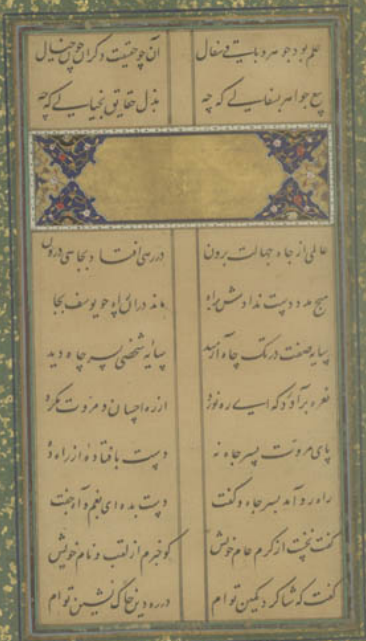 علم بود جوهر و باقی سفال آن چو حقیقت دگران چون خیال
بیع جواهر بسفالی که چه بذل حقایق بخیالی که چه
عالمی از چاه جهالت برون در رهی افتاد بچاهی درون
هیچ مدد دست ندادش براه ماند در آن چاه چو یوسف بجا
سایه صفت در تک چاه آرمید سایه شخصی بسر چاه دید
نعره برآورد که ای ره نورد از ره احسان و مروت مگرد
پای مروت بسر چاه نه دست بافتاده از راه ده
راه رو آمد بسر چاه و گفت دست بده ای بغم و آه جفت
گفت نخست از کرم عام خویش گو خبرم از لقب و نام خویش
گفت که شاگرد کمین توام در ره دین خاک نشین توام